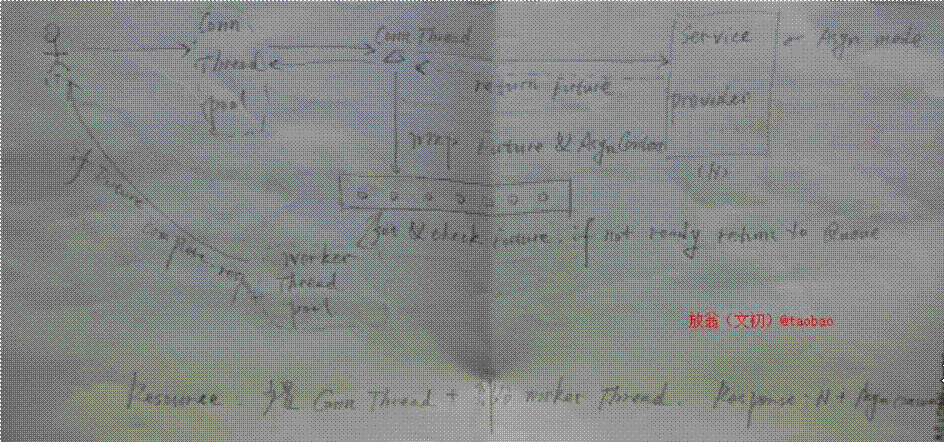 Conn Thread pool
Conn Thread
Service provider
Asyn mode
return future
(N)
wrap Future & Asyn
get & check future. if not ready return to Queue
if Future
worker Thread pool
放翁（文初）@taobao
Resource: Conn Thread + worker Thread. Response: N + Asyn